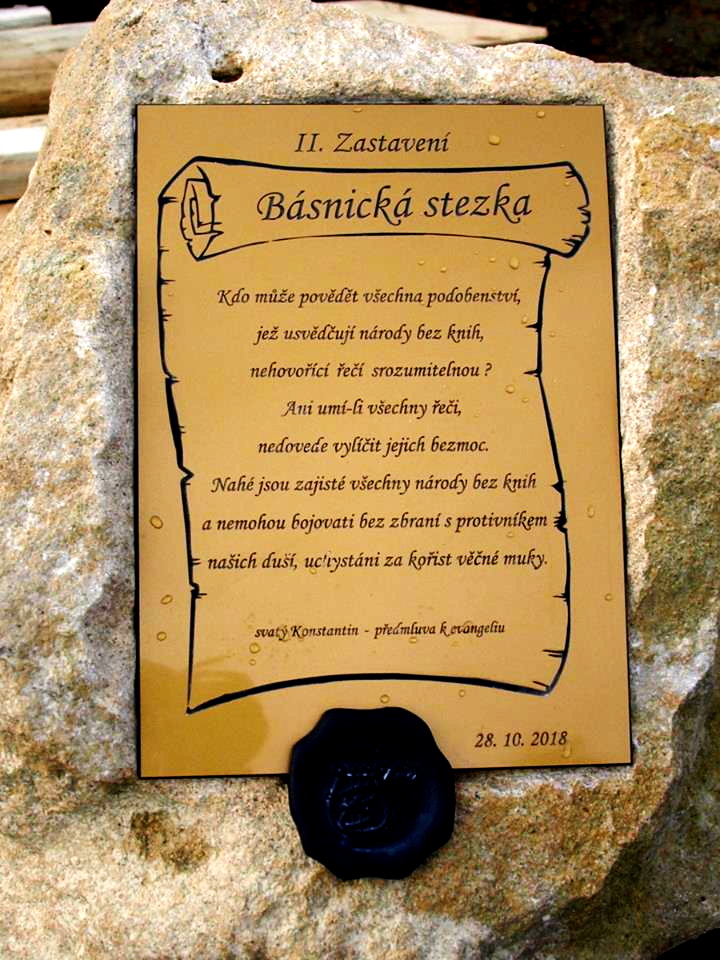 II. Zastavení
Básnická stezka
Kdo může povědět všechna podobenství,
jež usvědčují národy bez knih,
nehovořící řečí srozumitelnou ?
Ani umí-li všechny řeči,
nedovede vylíčit jejich bezmoc.
Nahé jsou zajisté všechny národy bez knih
a nemohou bojovati bez zbraní s protivníkem
našich duší, uchystáni za kořist věčné muky.
svatý Konstantin - předmluva k evangeliu
28. 10. 2018